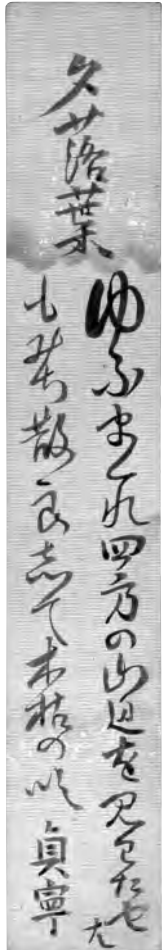 夕落葉
ゆふまくれ四方の山辺を見わたせは
もみち散らして木枯の吹
貞寧